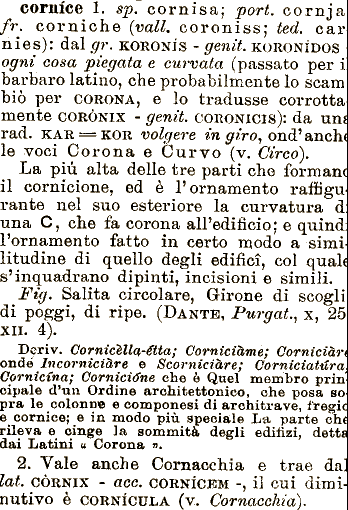 corníce 1. sp. cornisa; port. cornja
fr. corniche (vall. coroniss; ted. car
nies): dal gr. KORONÍS - genit. KORONÍDOS
ogni cosa piegata e curvata (passato per i
barbaro latino, che probabilmente lo scam
biò per CORONA, e lo tradusse corrotta
mente CORÒNIX - genit. CORONICIS): da una
rad. KAR = KOR volgere in giro, ond'anche
le voci Corona e Curvo (v. Circo).
La piú alta delle tre parti che formano
il cornicione, ed è l'ornamento raffigu
rante nel suo esteriore la curvatura d
una C, che fa corona all'edificio; e quindi
l'ornamento fatto in certo modo a simi
litudine di quello degli edificî, col quale
s'inquadrano dipinti, incisioni e simili.
Fig. Salita circolare, Girone di scogli
di poggi, di ripe. (DANTE, Purgat., X, 25
XII. 4).
Deriv. Cornicèlla-étta; Corniciàme; Corniciàre
onde Incorniciàre e Scorniciàre; Corniciatúra,
Cornicína; Cornicióne che è Quel membro prin
cipale d'un Ordine architettonico, che posa so
pra le colonne e componesi di architrave, fregio
e cornice; e in modo piú speciale La parte che
rileva e cinge la sommità degli edifizi, detta
dai Latini « Corona ».
2. Vale anche Cornacchia e trae dal
lat. CÒRNIX - acc. CORNÍCEM -, il cui dimi-
nutivo è CORNÍCULA (v. Cornacchia).